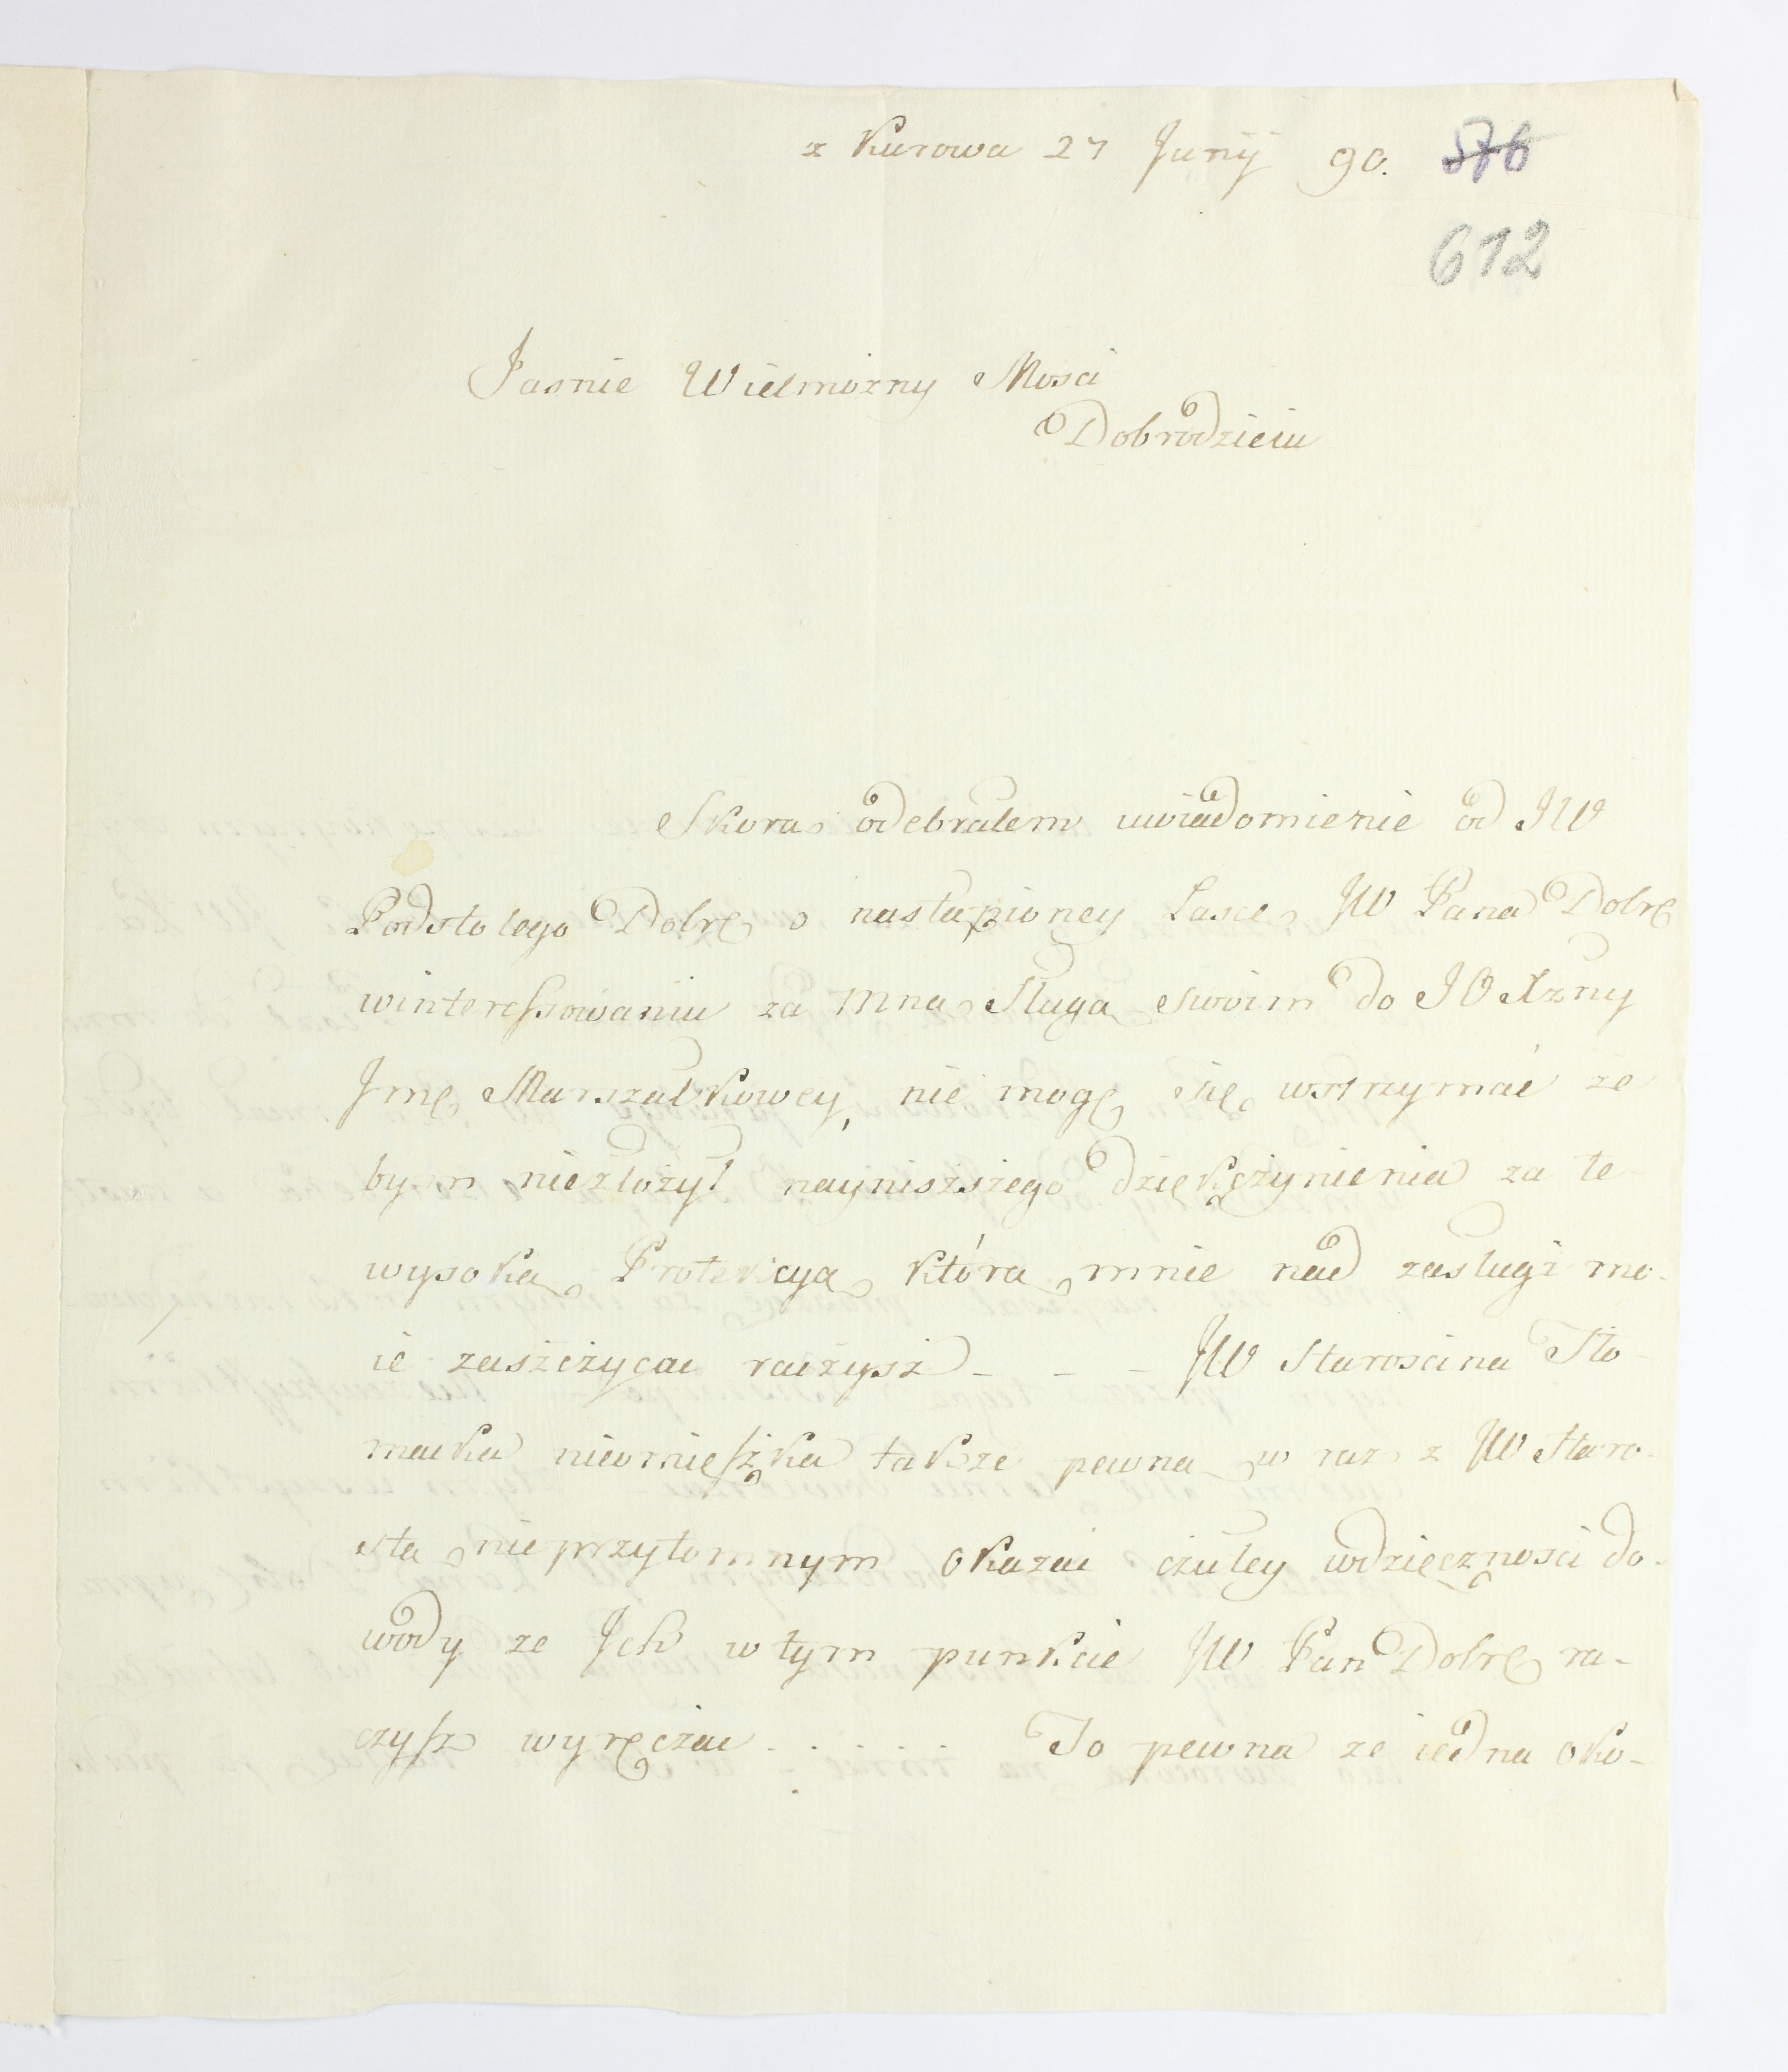 z Kurowa 27 Junij 90. 576
612
Jasnie Wielmożny Mosci
Dobrodzieiu
Skoro odebrałem uwiadomienie od JW
Podstolego Dobrę o nastąpioney Łasce JW Pana Dobrę
winteressowaniu za mną Sługą swoim do JO Xzny
Jmę Marszałkowey, nie mogę się wstrzymać ze
bym niezłożył nayniższego dziękczynienia za te
wysoką Protekcyą którą mnie nad zasługi mo-
ie zaszczycac raczysz - - - JW Starościna Tło-
macka niemieszka także pewna w raz z JW Staro-
stą nieprzytomnym okazać czułey wdzięczności do-
wody ze Ich w tym punkcie JW Pan Dobrę ra-
czysz wyręczac . . . . . . To pewna ze iedna oko-